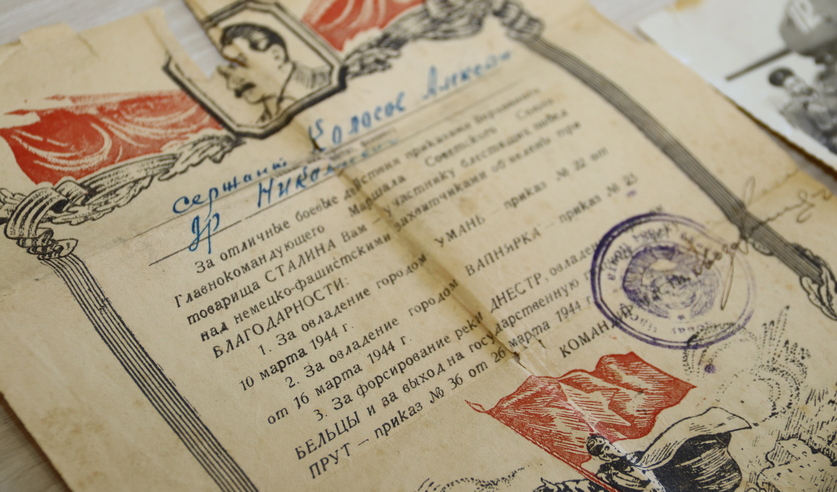 Сержант Колосов Алексей
За отличные боевые действия приказами Верховного
Главнокомандующего Маршала Советского Союза
товарища СТАЛИНА Вам, участнику блестящих побед
над немецко-фашистскими захватчиками объявлены три
БЛАГОДАРНОСТИ:
1. За овладение городом УМАНЬ — приказ № 22 от
10 марта 1944 г.
2. За овладение городом ВАПНЯРКА — приказ №
от 16 марта 1944 г.
3. За форсирование реки ДНЕСТР,
БЕЛЬЦЫ и за выход на государственную
ПРУТ — приказ № 36 от 26 марта 1944 г.